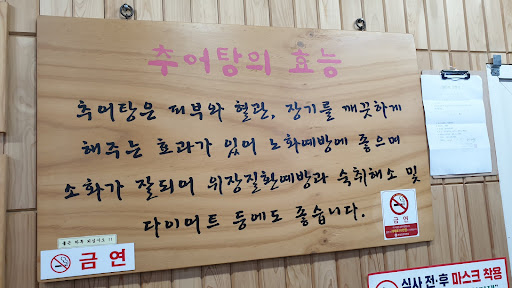 추어탕의 효능
추어탕은 피부와 혈관, 장기를 깨끗하게
해주는 효과가 있어 노화예방에 좋으며
소화가 잘되어 위장질환예방과 숙취해소 및
다이어트 등에도 좋습니다.
좋은 하루 되십시오 !!
금연
금연
식사 전·후 마스크 착용